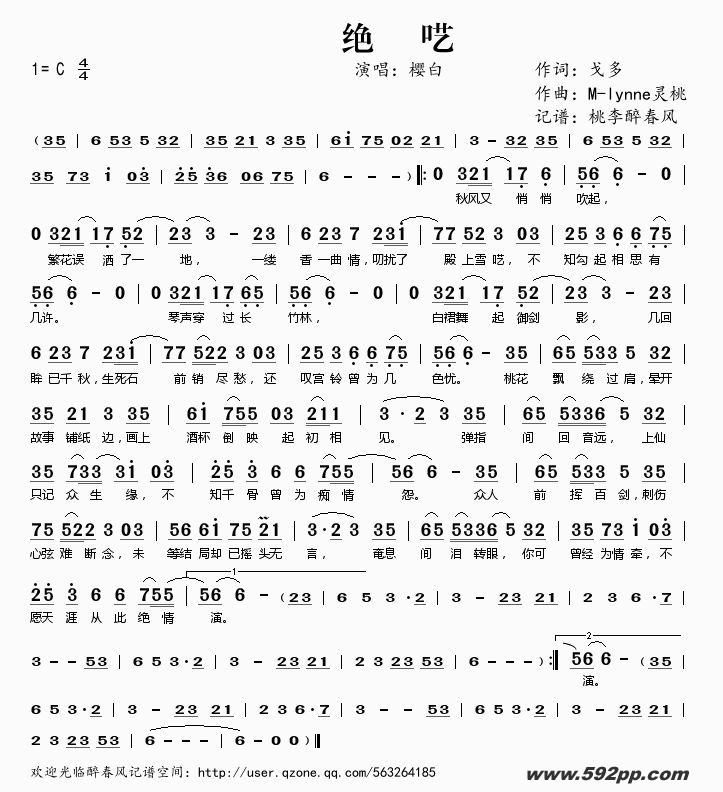 绝 呓
1= C 4/4 演唱：樱白 作词：戈多
作曲：M-lynne灵桃
记谱：桃李醉春风
( 35 | 6 53 5 32 | 35 21 3 35 | 61 75 02 21 | 3 - 32 35 | 6 53 5 32 |
35 73 1 03 | 25 36 06 75 | 6 - - ) ‖: 0 321 17 6 | 56 6 - 0 |
秋风又 悄 悄 吹起，
0 321 17 52 | 23 3 - 23 | 6 23 7 231 | 77 52 3 03 | 25 3 6 6 75 |
繁花误 洒 了一 地， 一缕 香 一曲 情，叨扰了 殿 上雪 呓，不 知勾 起 相 思 有
56 6 - 0 | 0 321 17 65 | 56 6 - 0 | 0 321 17 52 | 23 3 - 23 |
几许。 琴声穿 过 长 竹林， 白裙舞 起 御剑 影， 几回
6 23 7 231 | 77 522 3 03 | 25 3 6 6 75 | 56 6 - 35 | 65 533 5 32 |
眸 已千 秋，生死石 前 销 尽 愁，还 叹宫 铃 曾 为 几 色忧。 桃花 飘 绕 过 肩，晕开
35 21 3 35 | 61 755 03 211 | 3 · 2 3 35 | 65 5336 5 32 |
故事 铺纸 边，画上 酒杯 倒 映 起 初 相 见。 弹指 间 回 音 远，上仙
35 733 31 03 | 25 3 6 6 755 | 56 6 - 35 | 65 533 5 35 |
只记 众 生 缘，不 知千 骨 曾 为 痴 情 怨。 众人 前 挥 百 剑，刺伤
75 522 3 03 | 56 61 755 21 | 3 · 2 3 35 | 65 5336 5 32 | 35 73 1 03 |
心弦 难 断 念，未 等结 局却 已摇 头无 言，奄息 间 泪 转眼，你可 曾经 为情 牵，不
1
25 3 6 6 755 | 56 6 - (23 | 6 5 3 ·2 | 3 - 23 21 | 2 3 6 ·7 |
愿天 涯 从 此 绝 情 演。
2
3 - - 53 | 6 5 3 ·2 | 3 - 23 21 | 2 3 23 53 | 6 - - - ) :‖ 56 6 - (35 |
演。
6 5 3 ·2 | 3 - 23 21 | 2 3 6 ·7 | 3 - - 53 | 6 5 3 ·2 | 3 - 23 21 |
2 3 23 53 | 6 - - - | 6 - 0 0 ) ‖
欢迎光临醉春风记谱空间：http://user.qzone.qq.com/563264185
www.592pp.com